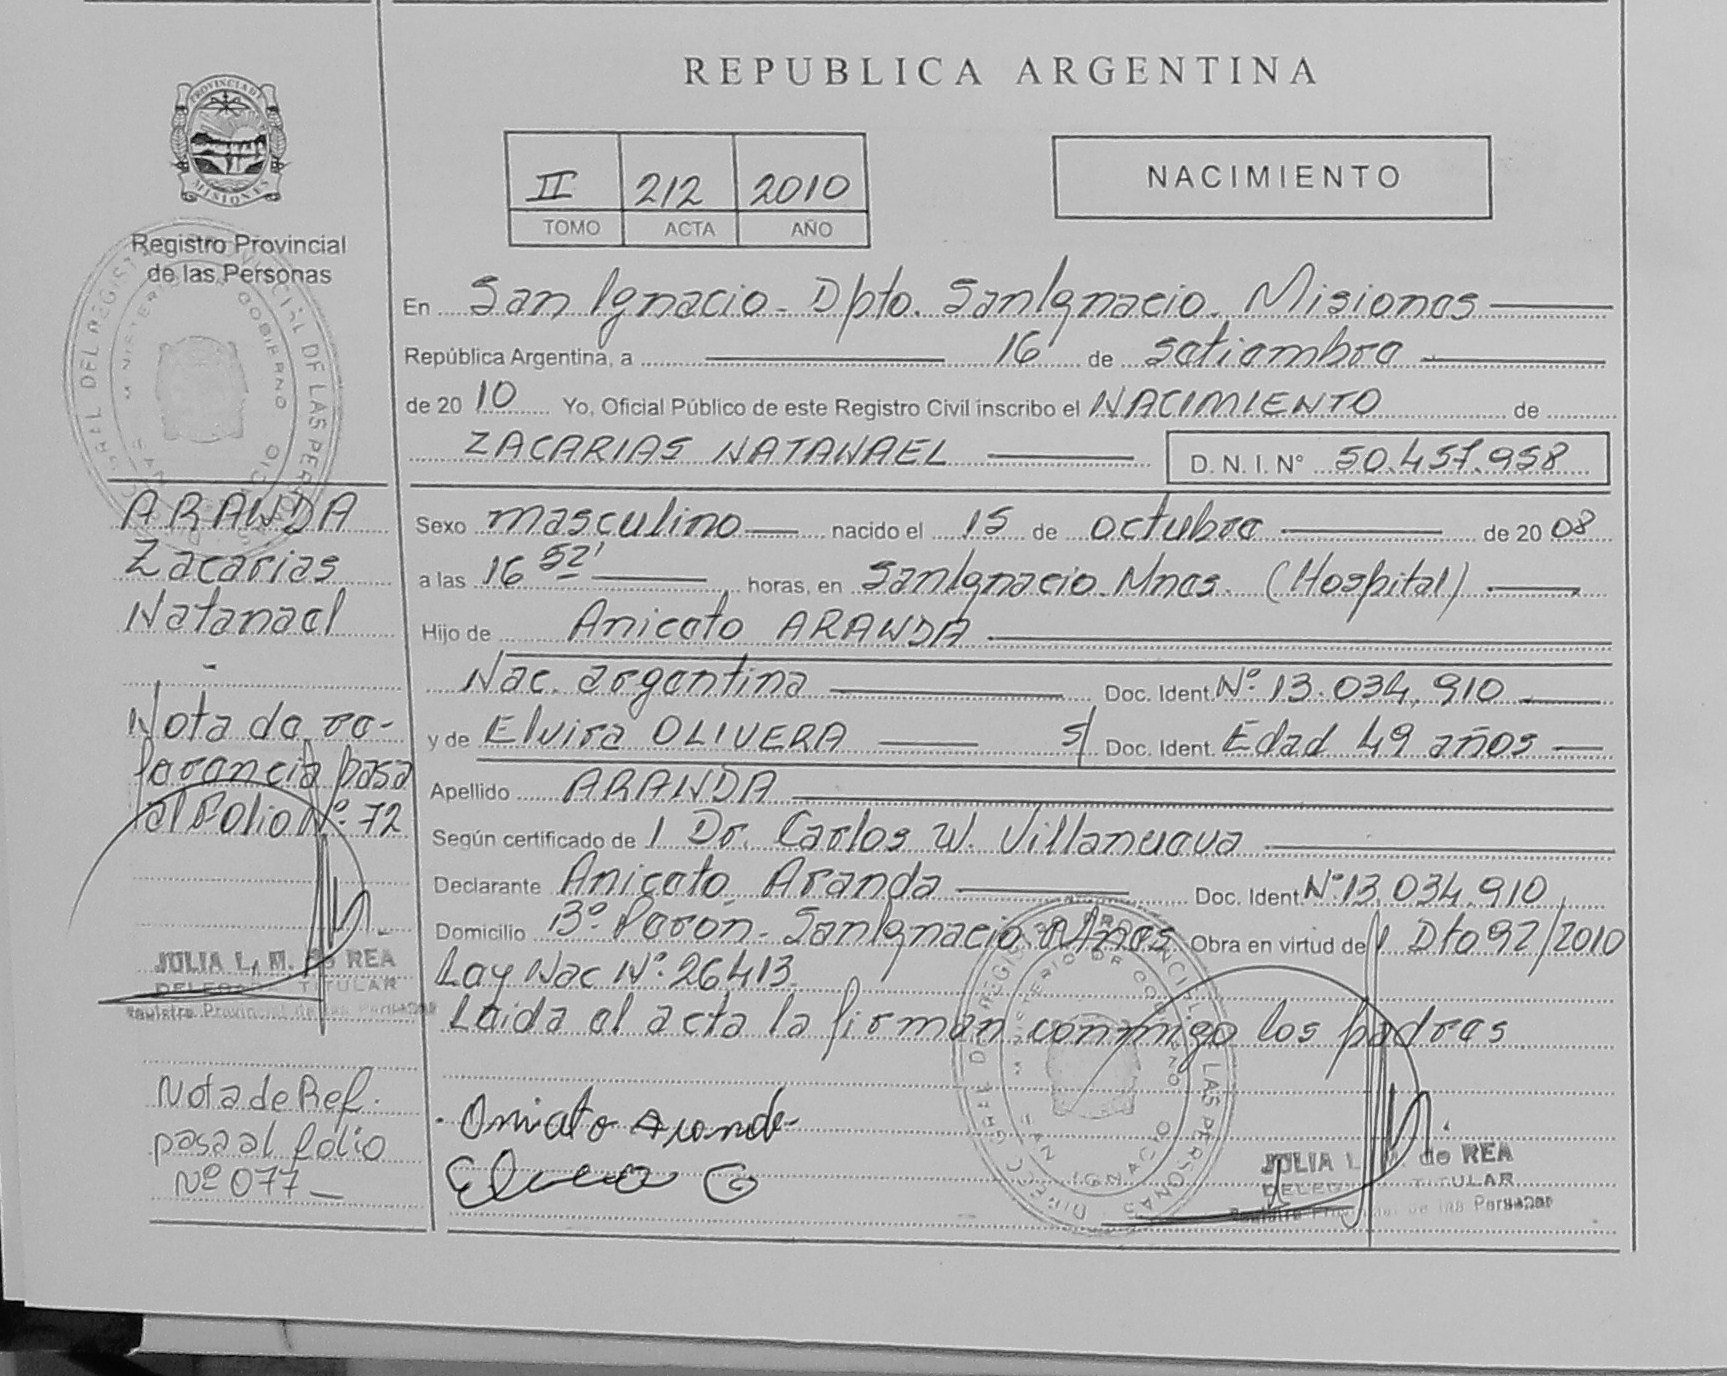 PROVINCIA DE
MISIONES
Registro Provincial
de las Personas
ARANDA
Zacarias
Natanael
-
Nota de re-
ferencia pasa
al folio Nº 72
JULIA L. M. de REA
DELEGADA TITULAR
Registro Provincial de las Personas
Nota de Ref.
pasa al folio
Nº 077
REPUBLICA ARGENTINA
II 212 2010
TOMO ACTA AÑO
NACIMIENTO
En San Ignacio - Dpto. San Ignacio. Misiones
República Argentina, a 16 de setiembre
de 2010 Yo, Oficial Público de este Registro Civil inscribo el NACIMIENTO de
ZACARIAS NATANAEL D. N. I. Nº 50.457.958
Sexo masculino nacido el 15 de octubre de 2008
a las 16 52' horas, en San Ignacio Mnes. (Hospital)
Hijo de Aniceto ARANDA
Nac. argentina Doc. Ident. Nº 13.034.910
y de Elvira OLIVERA s/ Doc. Ident. Edad 49 años
Apellido ARANDA
Según certificado de l Dr. Carlos W. Villanueva
Declarante Aniceto Aranda Doc. Ident. Nº 13.034.910
Domicilio Bº Perón - San Ignacio Mnes Obra en virtud de l Dto 92/2010
Ley Nac Nº 26.413.
Leida el acta la firman conmigo los padres
JULIA L. M. de REA
DELEGADA TITULAR
Registro Provincial de las Personas